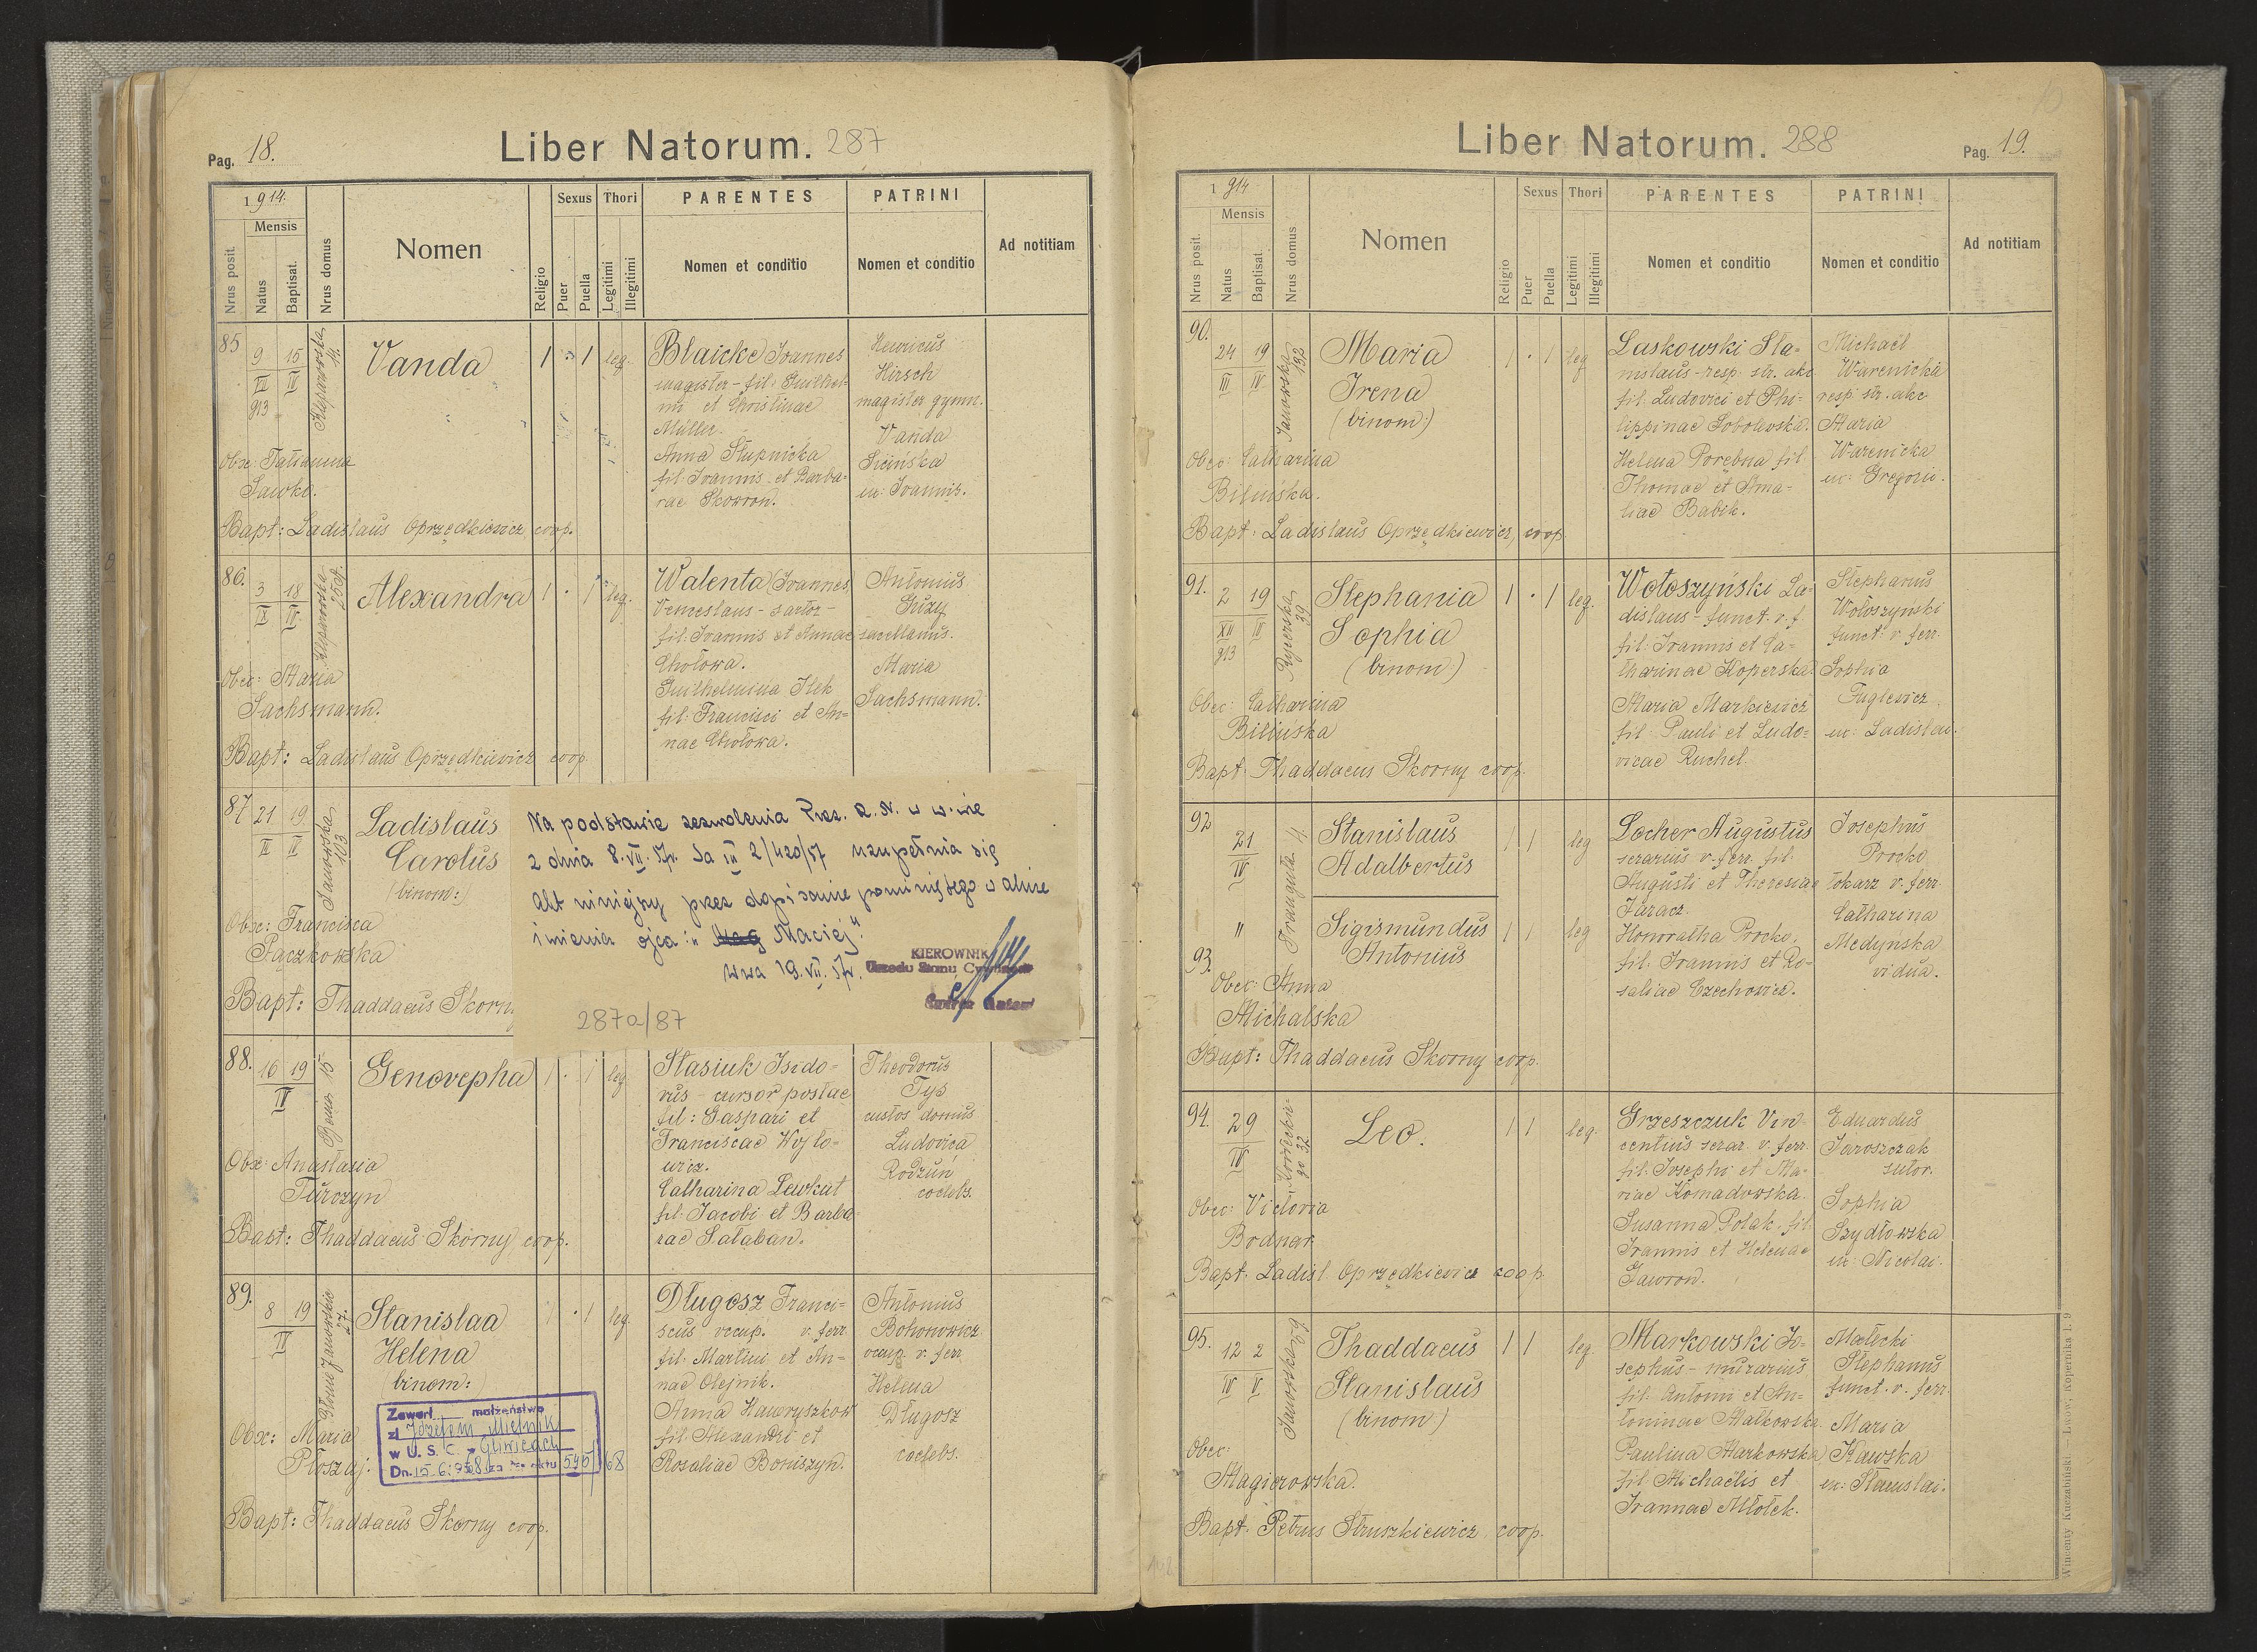 Pag. 18.
Liber Natorum. 287
1914.
Mensis
Nrus posit.
Natus
Baptisat.
Nrus domus
Nomen
Religio
Sexus
Puer
Puella
Thori
Legitimi
Illegitimi
PARENTES
Nomen et conditio
PATRINI
Nomen et conditio
Ad notitiam
85
9 15
III IV
913
Kleparowska
14.
Vanda
1 1 leg.
Blaicke Joannes
magister - fil: Guilhel-
mi et Christinae
Müller.
Anna Słupnicka
fil: Joannis et Barba-
rae Skowron.
Henricus
Hirsch
magister gymn.
Vanda
Sicińska
ux: Joannis.
Obst: Tatianna
Sawka.
Bapt: Ladislaus Oprzędkiewicz coop.
86.
3 18
IX IV
Kleparowska
Alexandra
1 1 leg.
Walenta (Joannes)
Vemeslaus - sartor -
fil: Joannis et Annae
Chotowa.
Guilhelmina Ilek
fil: Francisci et An-
nae Chotowa.
Antonius
Guzy
sacellanus.
Maria
Sachsmann.
Obst: Maria
Sachsmann.
Bapt: Ladislaus Oprzędkiewicz coop
87
21 19.
II IV
Janowska
103
Ladislaus
Carolus
(binom:)
Obst: Francisca
Pączkowska
Bapt: Thaddaeus Skorny
Na podstawie zezwolenia Prez. R. N. w w-wie
z dnia 8.VII.57r. Sa III 2/420/57 uzupełnia się
akt niniejszy przez dopisanie pominiętego w akcie
imienia ojca: „Maciej".
Wwa 19.VII.57r.
KIEROWNIK
Urzędu Stanu Cywilnego
287a/87
88.
16 19
IV
Bema 15
Genovepha
1 1 leg
Stasiuk Isido-
rus - cursor postae
fil: Gaspari et
Franciscae Wojto-
wicz.
Catharina Lewkut
fil: Jacobi et Barba
rae Sałaban.
Theodorus
Tys
custos domus
Ludovica
Rodzun
coelebs.
Obst: Anastasia
Turczyn
Bapt: Thaddaeus Skorny coop.
89.
8 19
IV
Błonie Janowskie
27.
Stanislaa
Helena
(binom:
1 1 leg.
Długosz Franci-
scus occup. v. ferr.
fil: Martini et An-
nae Olejnik.
Anna Hawryszków
fil: Alexandri et
Rosaliae Boniszyn.
Antonius
Bohonowicz
occup v. ferr
Helena
Długosz
coelebs.
Obst: Maria
Płoszaj.
Zawarł małżeństwo
z Józefem Mielnik
w U. S. C. Gliwicach
Dn. 15.6.1958 za Nr aktu 545/68
Bapt: Thaddaeus Skorny coop.
Liber Natorum. 288
Pag. 19.
1914
Mensis
Nrus posit.
Natus
Baptisat.
Nrus domus
Nomen
Religio
Sexus
Puer
Puella
Thori
Legitimi
Illegitimi
PARENTES
Nomen et conditio
PATRINI
Nomen et conditio
Ad notitiam
90.
24 19
III IV
Janowska
132
Maria
Irena
(binom:)
1 1 leg
Laskowski Sta-
nislaus - resp. str. akc
fil: Ludovici et Phi-
lippinae Sobolewska.
Helena Porębna fil
Thomae et Ama-
liae Babik.
Michael
Warenicka
resp. str. akc
Maria
Warenicka
ux: Gregorii.
Obst: Catharina
Bilińska.
Bapt: Ladislaus Oprzędkiewicz, coop
91.
2 19
XII IV
913
39
Stephania
Sophia
(binom)
1 1 leg.
Wołoszyński La-
dislaus - funct. v. f
fil: Joannis et Ca-
tharinae Koperska.
Maria Markiewicz
fil: Pauli et Ludo-
vicae Ruchel.
Stephanus
Wołoszynski
funct: v. ferr.
Sophia
Fuglewicz
ux: Ladislai.
Obst: Catharina
Bilińska
Bapt: Thaddaeus Skorny coop.
92
21
IV
4
Stanislaus
Adalbertus
1 1 leg
Locher Augustus
serarius v. ferr. fil.
Augusti et Theresiae
Jaracz.
Honoratha Procko,
fil: Joannis et Ro-
saliae Czechowicz.
Josephus
Procko
tokarz v. ferr.
Catharina
Medynska
vidua.
"
93.
Sigismundus
Antonius
1 1 leg
Obst: Anna
Michalska
Bapt: Thaddaeus Skorny coop.
94.
29
IV
Leo.
1 1 leg.
Grzeszczuk Vin-
centius serar. v. ferr.
fil: Josephi et Ma-
riae Komadowska.
Susanna Polak, fil.
Joannis et Helenae
Gawron.
Eduardus
Jaroszczak
sutor.
Sophia
Szydłowska
ux: Nicolai.
Obst: Victoria
Bodnar
Bapt: Ladisl. Oprzędkiewicz coop.
95.
12 2
IV V
Janowska 59
Thaddaeus
Stanislaus
(binom)
1 1 leg
Markowski Jo-
sephus - murarius
fil: Antoni et An-
toninae Małkowska.
Paulina Markowska
fil Michaëlis et
Joannae Młotek.
Małecki
Stephanus
funct. v. ferr.
Maria
Kawska
ux: Stanislai.
Obst:
Magierowska.
Bapt: Petrus Struszkiewicz coop.
Wincenty Kuczabiński, Lwów, Kopernika l. 9